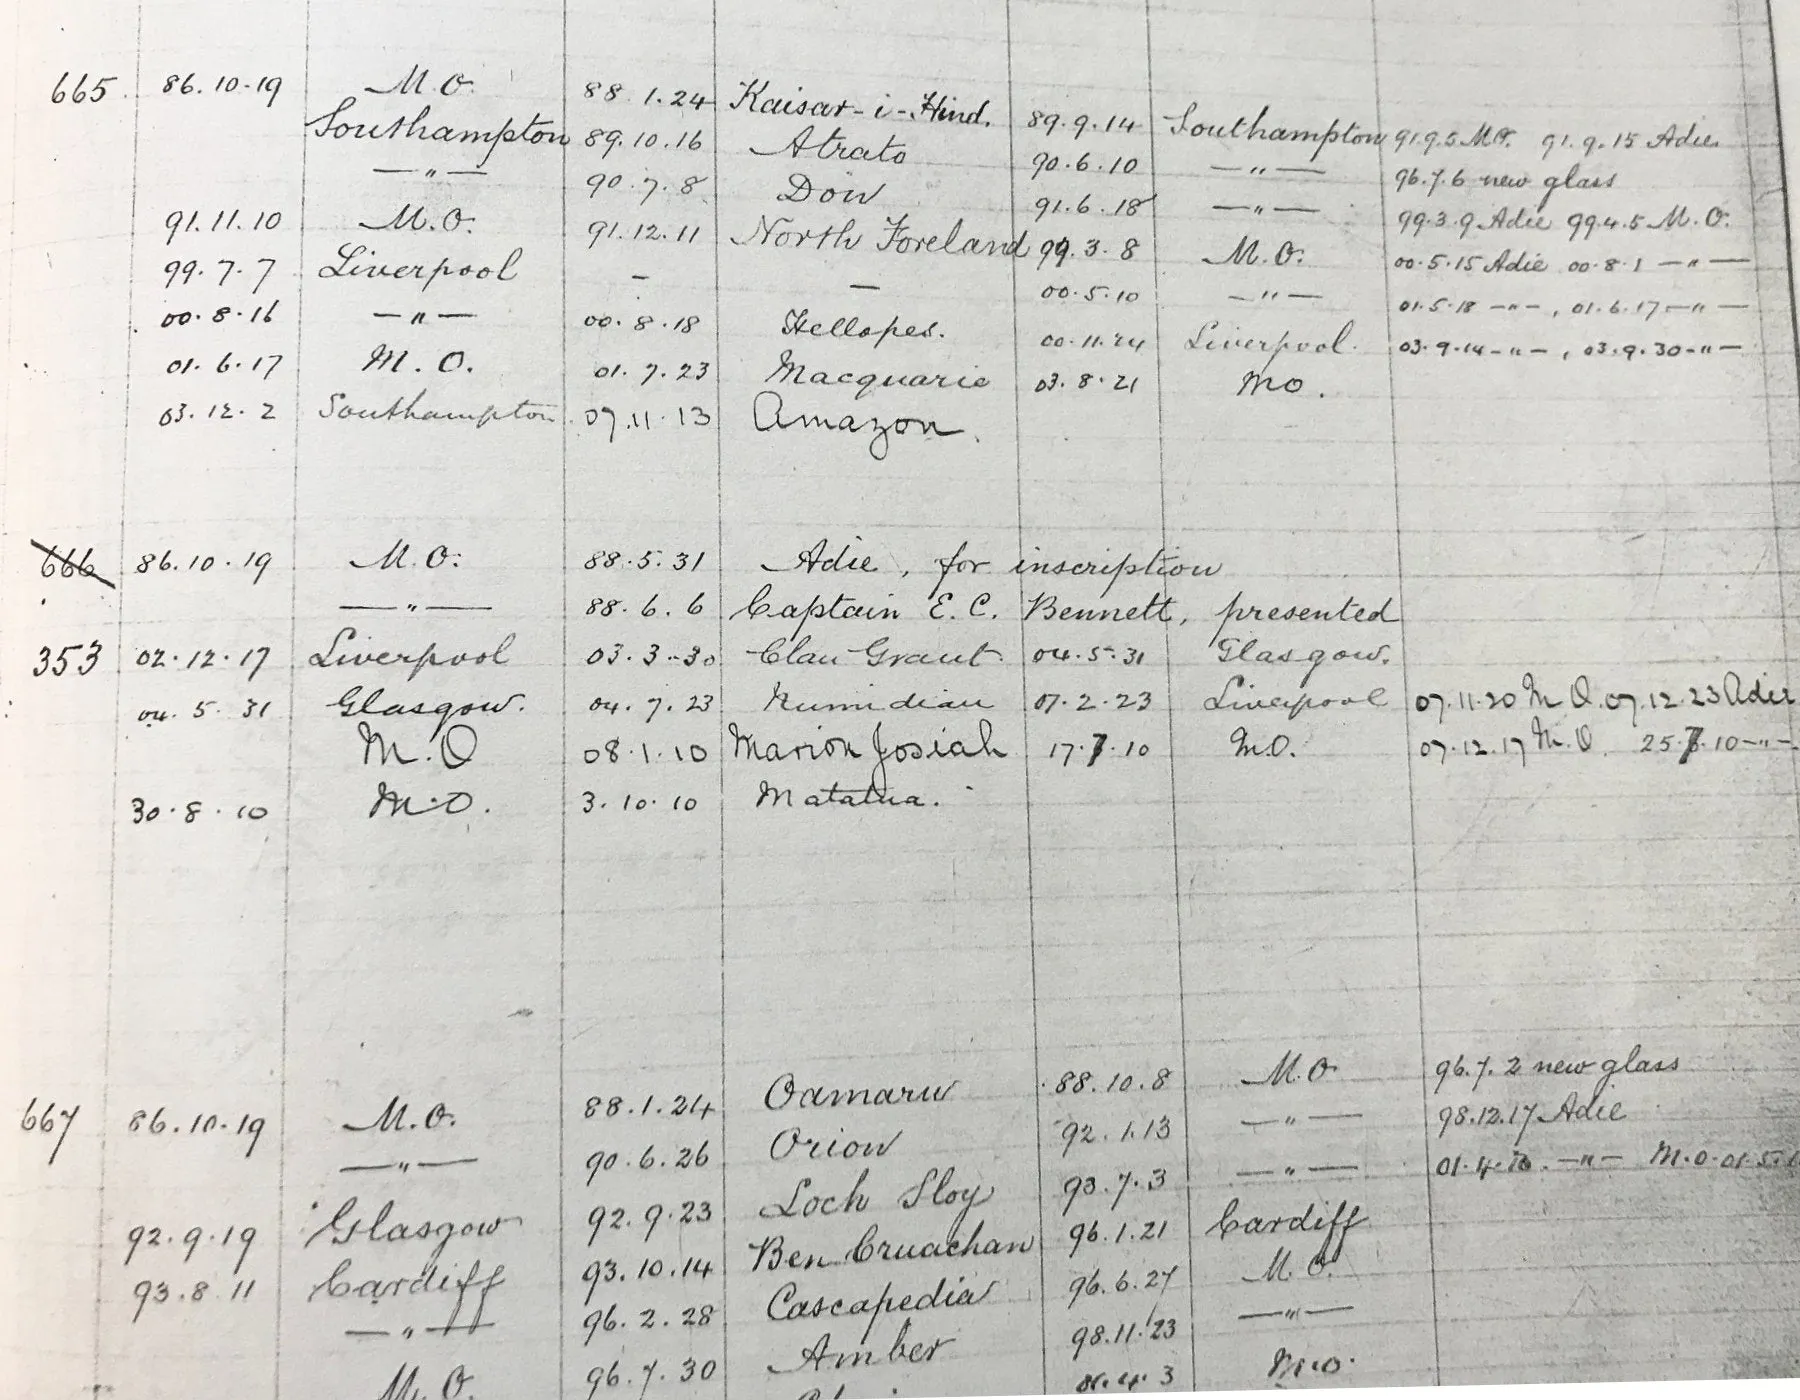 665 86.10.19 M.O. 88.1.24 Kaisar-i-Hind. 89.9.14 Southampton 91.9.5 M.O. 91.9.15 Adie
Southampton 89.10.16 Atrato 90.6.10 —"— 96.7.6 new glass
—"— 90.7.8 Don 91.6.18 —"— 99.3.9 Adie 99.4.5 M.O.
91.11.10 M.O. 91.12.11 North Foreland 99.3.8 M.O. 00.5.15 Adie 00.8.1 —"—
99.7.7 Liverpool – — 00.5.10 —"— 01.5.18 —"—, 01.6.17 —"—
00.8.16 —"— 00.8.18 Hellopes. 00.11.24 Liverpool. 03.9.14 —"—, 03.9.30 —"—
01.6.17 M.O. 01.7.23 Macquarie 03.8.21 MO.
03.12.2 Southampton 07.11.13 Amazon.
666 86.10.19 M.O. 88.5.31 Adie, for inscription
—"— 88.6.6 Captain E.C. Bennett, presented
353 02.12.17 Liverpool 03.3.30 Clan Grant 04.5.31 Glasgow.
04.5.31 Glasgow. 04.7.23 Numidian 07.2.23 Liverpool 07.11.20 M.O. 07.12.23 Adie
M.O 08.1.10 Marion Josiah 17.7.10 M.O. 07.12.17 M.O. 25.7.10 —"—
30.8.10 M.O. 3.10.10 Matatua.
667 86.10.19 M.O. 88.1.24 Oamaru 88.10.8 M.O 96.7.2 new glass
—"— 90.6.26 Orion 92.1.13 —"— 98.12.17 Adie
92.9.19 Glasgow 92.9.23 Loch Sloy 93.7.3 —"— 01.4. —"— M.O. 01.5.
93.8.11 Cardiff 93.10.14 Ben Cruachan 96.1.21 Cardiff
—"— 96.2.28 Cascapedia 96.6.27 M.O.
M.O. 96.7.30 Amber 98.11.23 —"—
4.3 M.O.